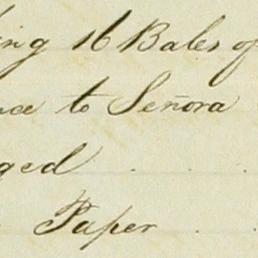 ing 16 Bales of
nce to Señora
ged . . .
Paper . .